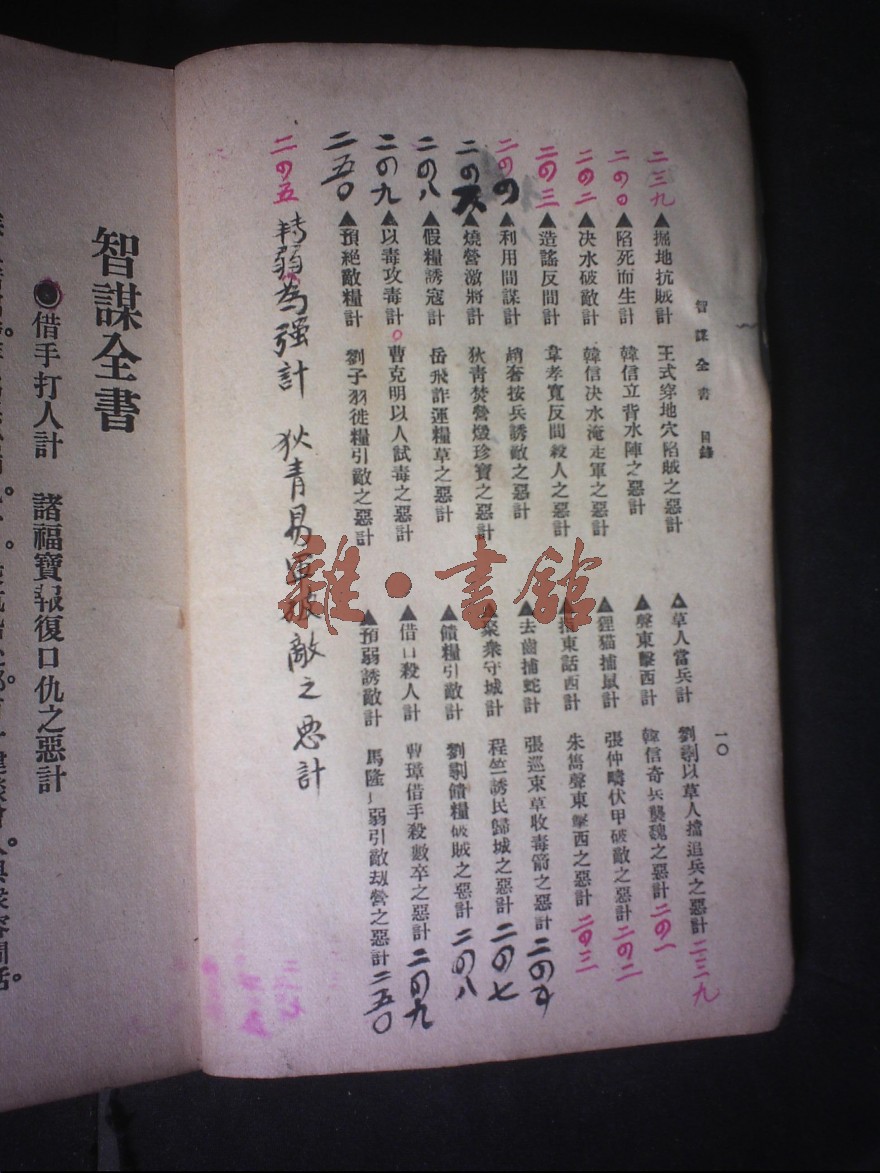 智謀全書 目錄
一〇
▲草人當兵計 劉剸以草人擋追兵之惡計 二三九
▲聲東擊西計 韓信奇兵襲魏之惡計 二〇一
▲狸猫捕鼠計 張仲疇伏甲破敵之惡計 二〇二
▲指東話西計 朱雋聲東擊西之惡計 二〇三
▲去齒捕蛇計 張巡束草收毒箭之惡計
▲聚衆守城計 程竺誘民歸城之惡計 二の七
▲饋糧引敵計 劉剸饋糧破賊之惡計 二の八
▲借口殺人計 曹璋借手殺數卒之惡計 二の九
▲預弱誘敵計 馬隆 弱引敵劫營之惡計 二五〇
二三九 ▲掘地抗賊計 王式穿地穴陷賊之惡計
二の〇 ▲陷死而生計 韓信立背水陣之惡計
二の二 ▲决水破敵計 韓信决水淹走軍之惡計
二の三 ▲造謠反間計 韋孝寬反間殺人之惡計
二の ▲利用間諜計 趙奢按兵誘敵之惡計
二の六 ▲燒營激將計 狄靑焚營燬珍寶之惡計
二の八 ▲假糧誘寇計 岳飛詐運糧草之惡計
二の九 ▲以毒攻毒計 曹克明以人試毒之惡計
二五〇 ▲預絕敵糧計 劉子羽徙糧引敵之惡計
二の五 轉弱為强計 狄青易 敵之惡計
智謀全書
●借手打人計 諸福寶報復口仇之惡計
雜·書館